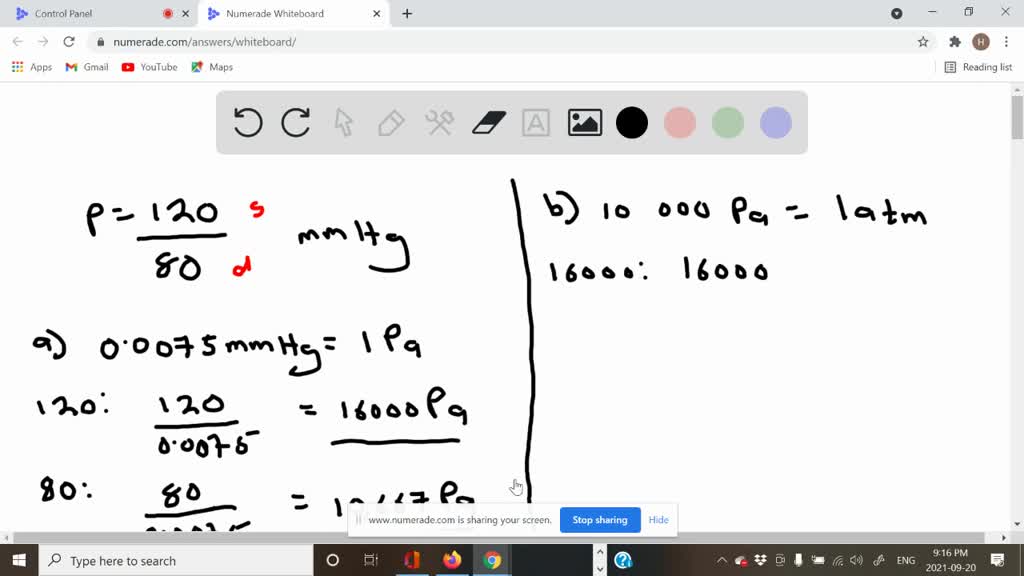 Control Panel
Numerade Whiteboard
numerade.com/answers/whiteboard/
H
Apps Gmail YouTube Maps Reading list
A
P = 120 s mmHg
80 d
a) 0.0075 mmHg = 1 Pa
120: 120 = 16000 Pa
0.0075
80: 80 = 10667 Pa
0.0075
b) 10 000 Pa = 1 atm
16000: 16000
www.numerade.com is sharing your screen. Stop sharing Hide
Type here to search
ENG
9:16 PM
2021-09-20